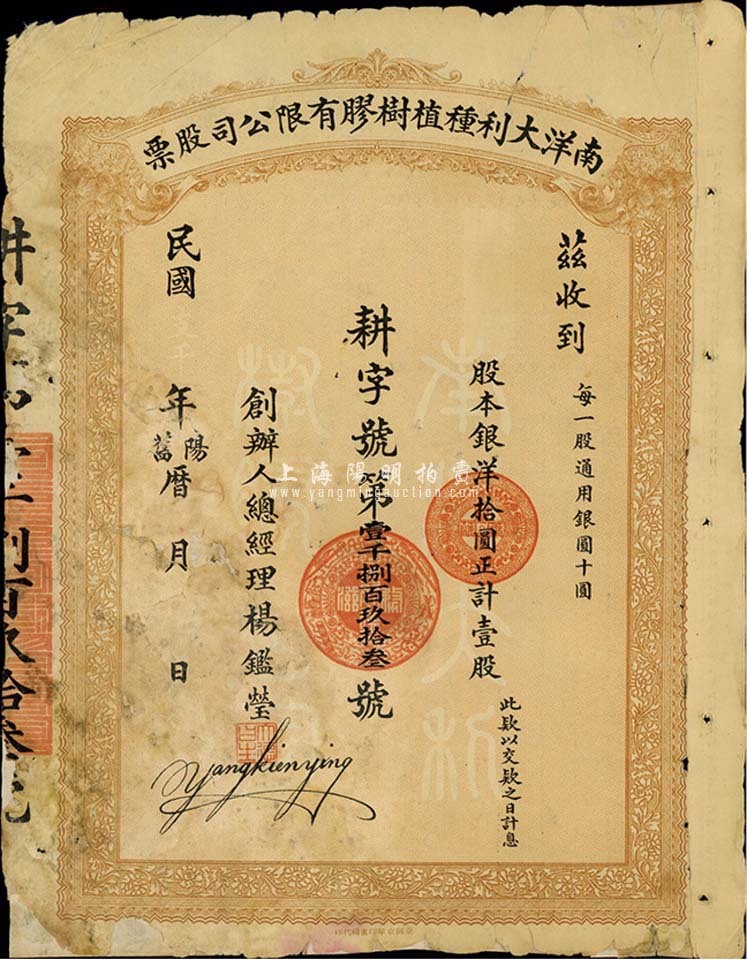 南洋大利種植樹膠有限公司股票
茲收到
每一股通用銀圓十圓
股本銀洋拾圓正計壹股
此款以交款之日計息
耕字號第壹千捌百玖拾叁號
創辦人總經理楊鑑瑩
Yangkienying
民國 年 陽舊曆 月 日
上海陽明拍賣
www.yangmingauction.com